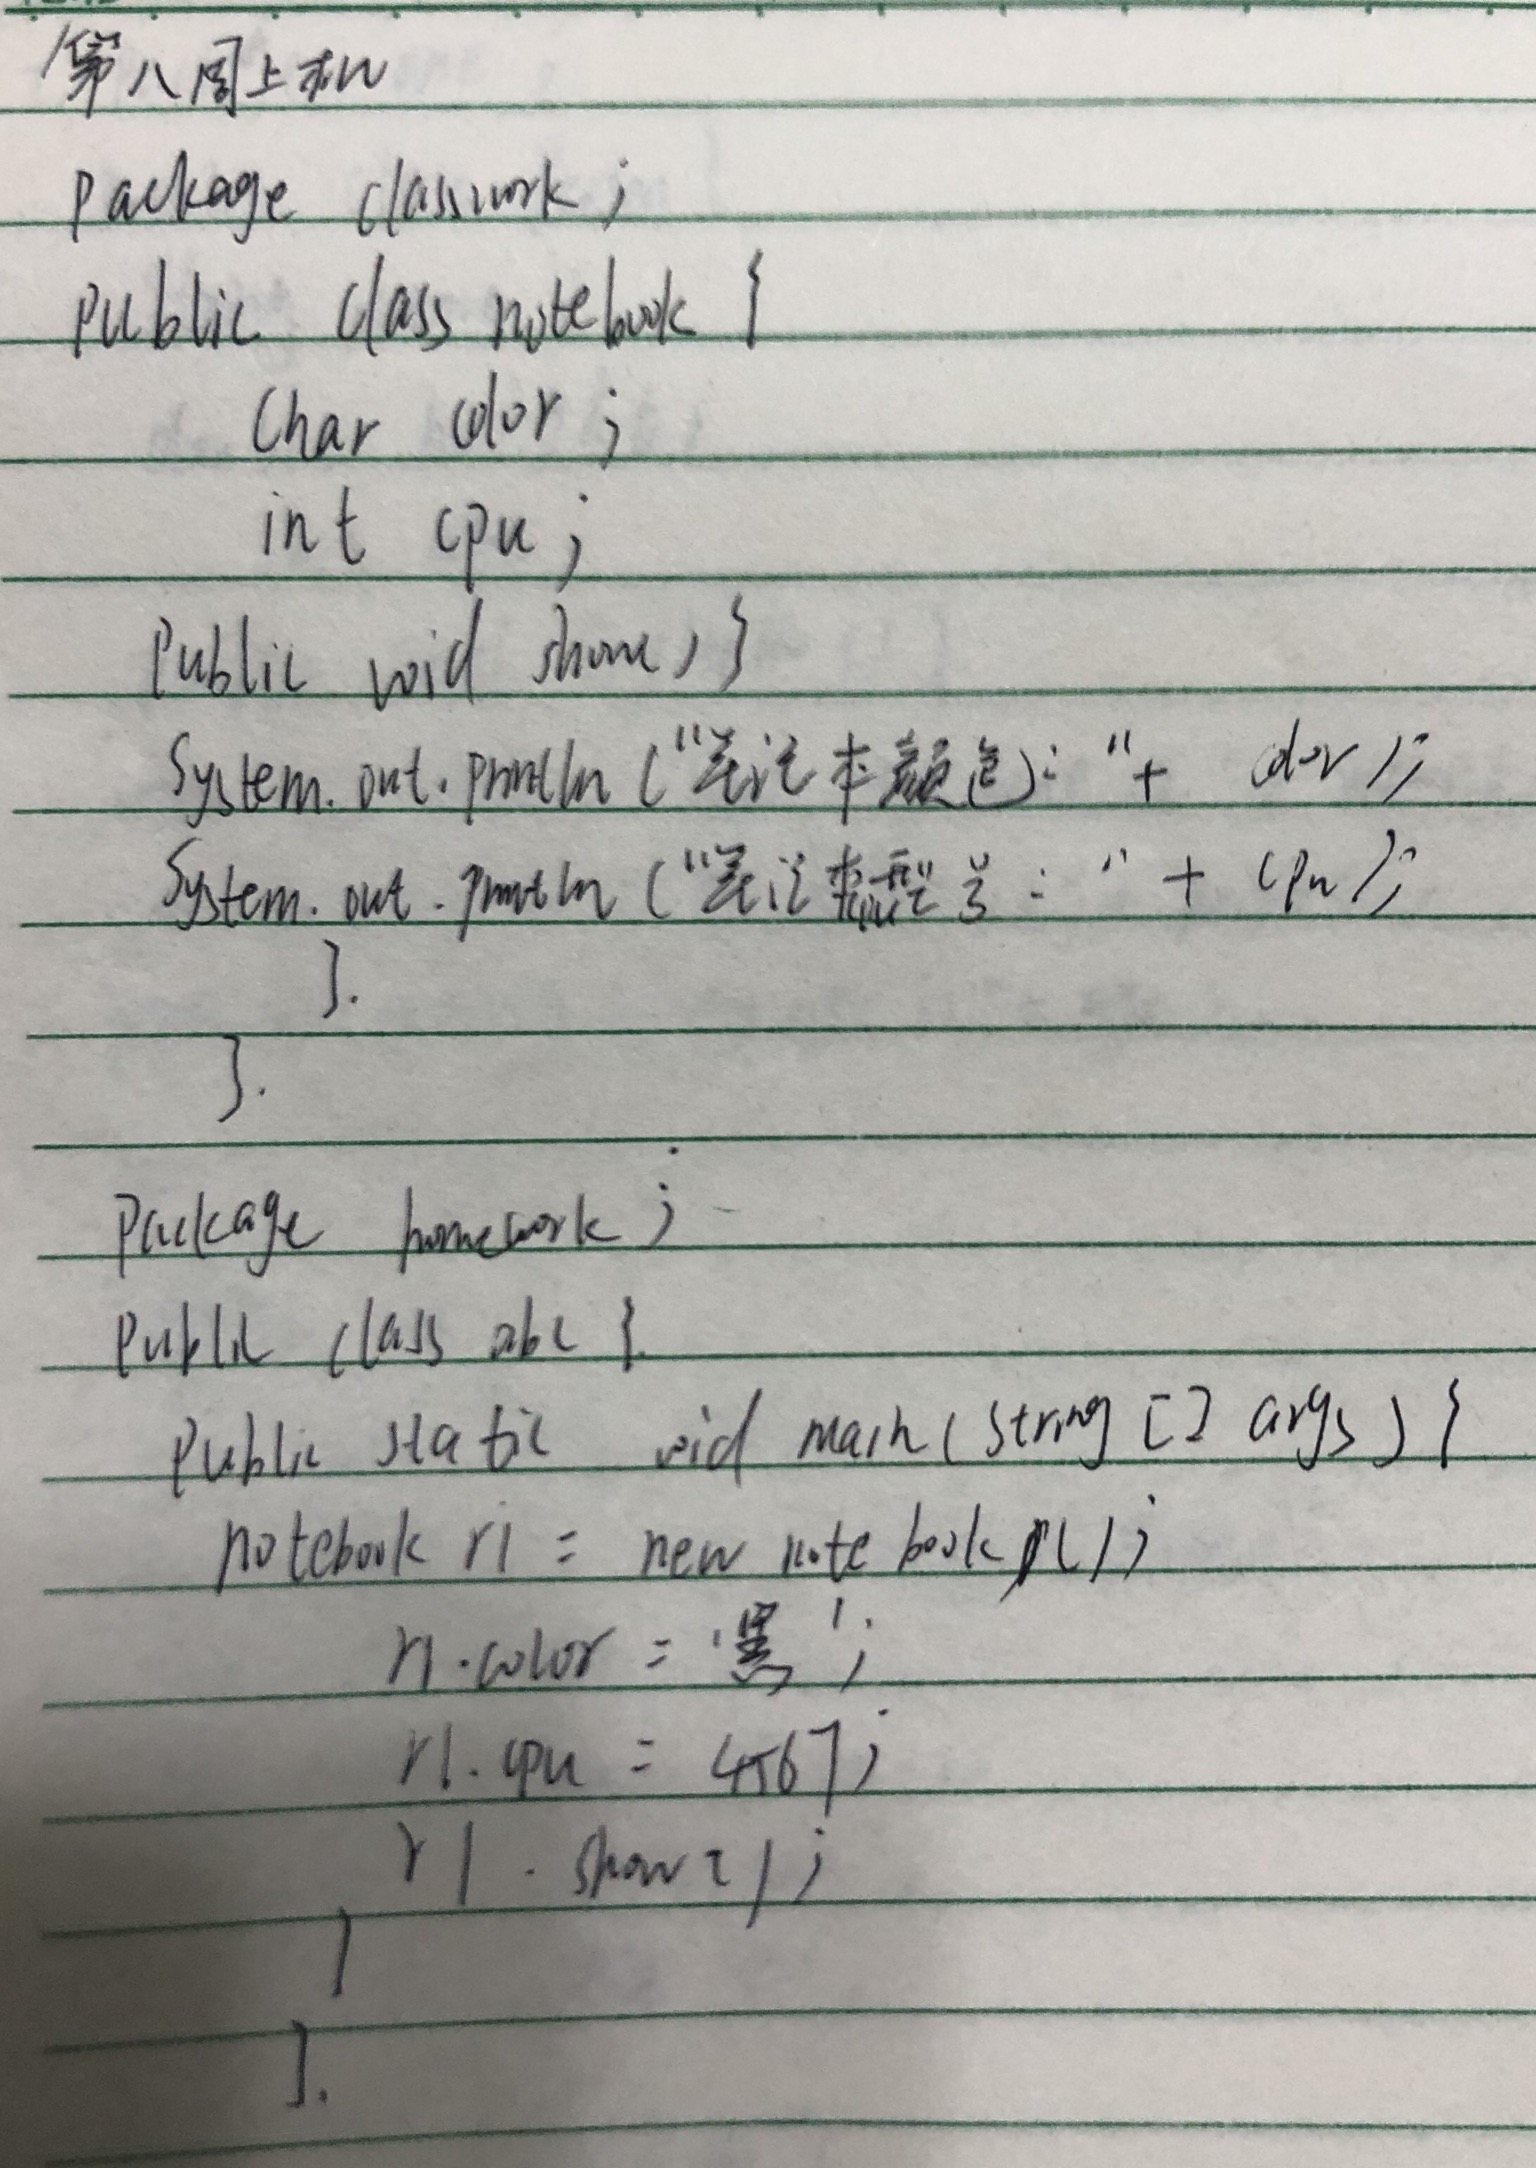 第八周上机
package classwork;
public class notebook {
char color;
int cpu;
public void show() {
System.out.println("笔记本颜色: "+ color);
System.out.println("笔记本型号: " + cpu);
}.
}.
package homework;
public class abc {
public static void main(string [] args) {
notebook r1 = new notebook();
r1.color = '黑';
r1.cpu = 4567;
r1.show();
}
}.